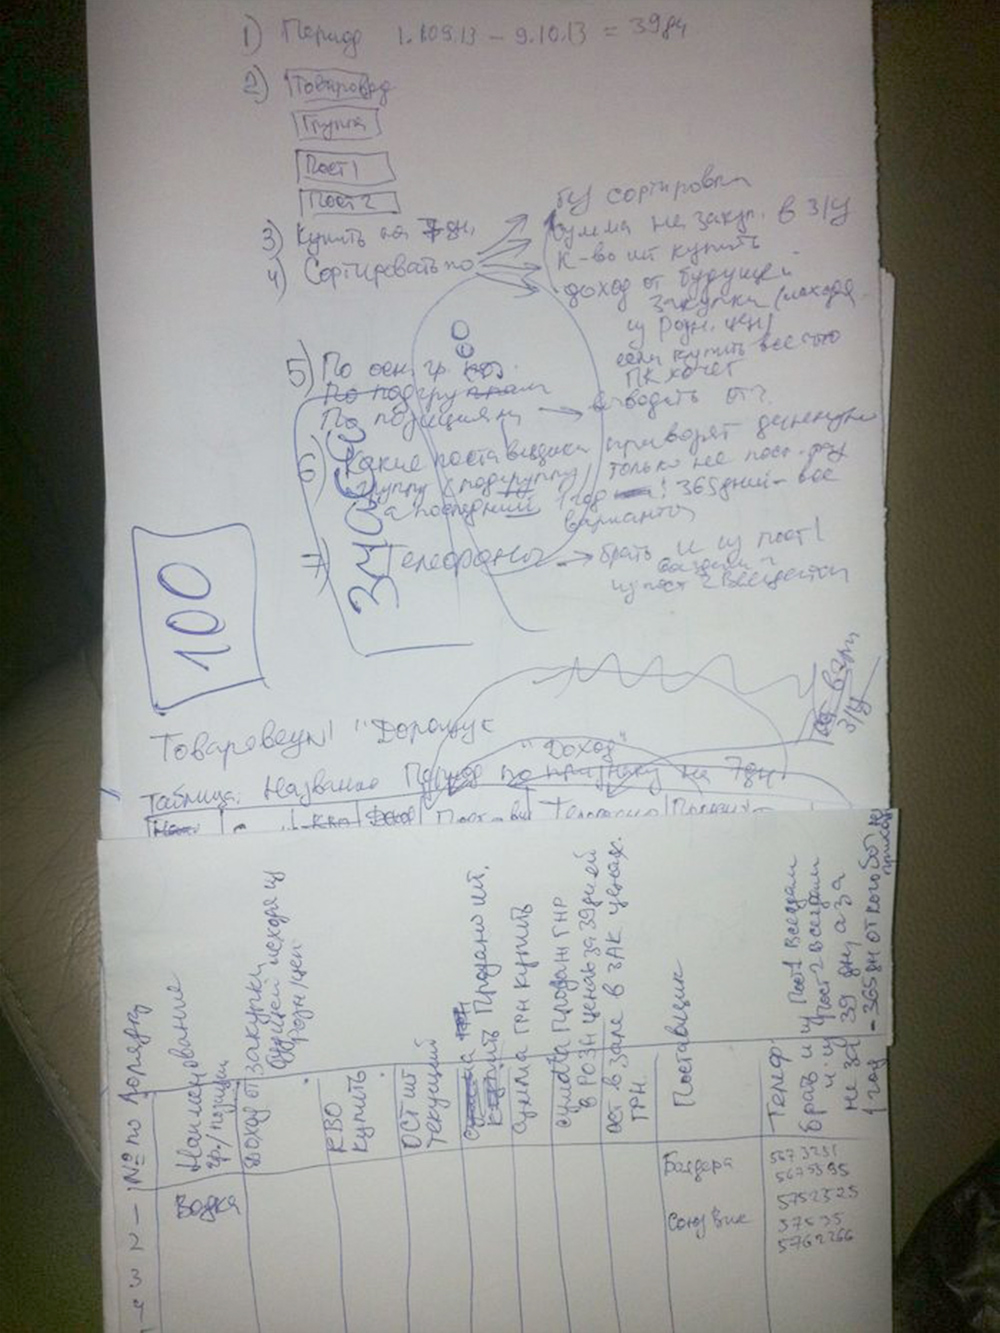 1) Период 1.109.13 - 9.10.13 = 39дн
2) Товаровед
Группа
Пост 1
Пост 2
3) Купить на 7 дн.
4) Сортировать по
без сортировки
Сумма не закуп. в З/Ц
К-во шт купить
доход от будущей
закупки (исходя
из Розн. цен)
если купить все что
ПК хочет
5) По осн. гр.
По подгруппам
По позициям → выводить от?
6) Какие поставщики привозят данную
группу (подгруппу), только не посл.
а последний 1 год ! 365 дней - все
варианты
7) Телефоны → брать и из пост 1
и из пост 2
100
Товаровед "Дорощук
"Доход"
Таблица: Название Период на 7 дн
З/Ц
Кво Доход Пост-вик Телефоны
№ по порядку
Наименование
гр./позиции
доход от закупки
будущей исходя из
Розн/цен
КВО
Купить
ОСТ шт
текущий
Продано шт.
Сумма ГРН купить
Сумма Продани ГНР
в РОЗН ценах за 39 дней
ост в зале в ЗАК. ценах.
ГРН.
Поставщик
Телеф.
брать и из Пост 1
и из Пост 2
не за 39 дн, а за
1 год - 365 дн от кого
1
2
3
4
Водка
Баядера
Союз Вик
5673251
5752525
37535
5762266